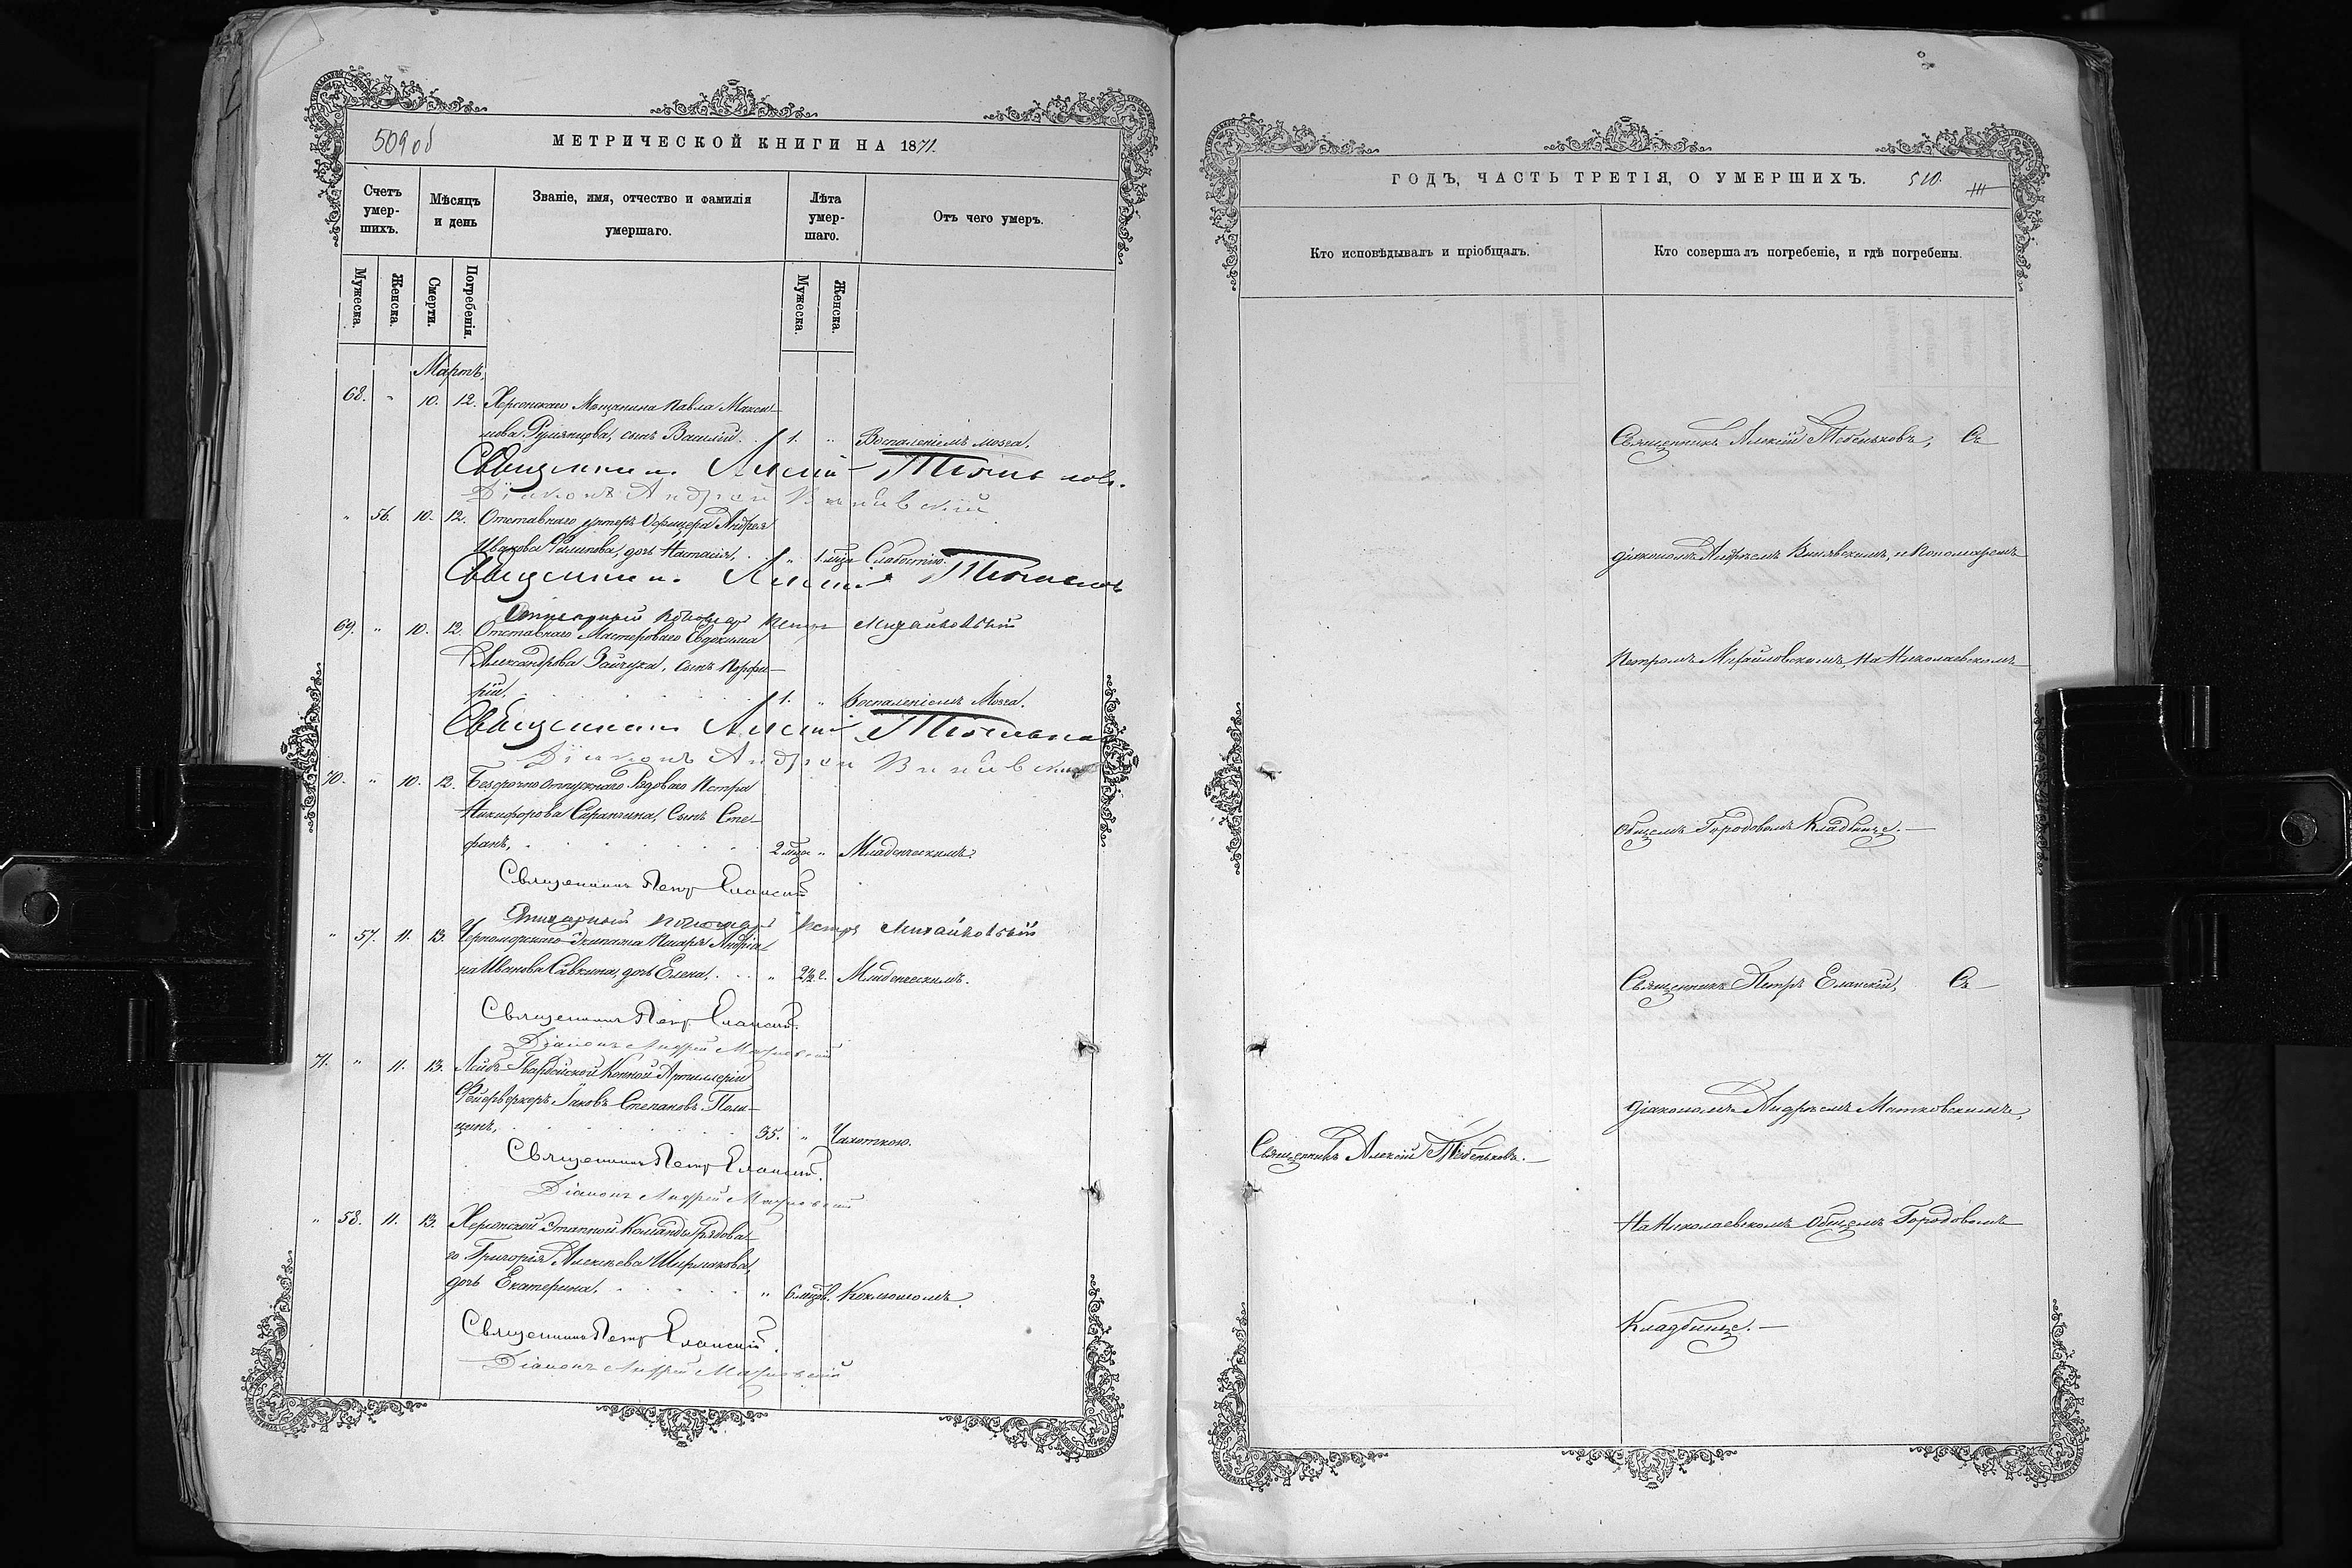 509 об
МЕТРИЧЕСКОЙ КНИГИ НА 1871.
Счетъ умер-шихъ.
Мѣсяцъ и день
Званіе, имя, отчество и фамилія умершаго.
Лѣта умер-шаго.
Отъ чего умеръ.
Мужеска.
Женска.
Смерти.
Погребенія.
Мужеска.
Женска.
Мартъ.
68. " 10. 12. Херсонскаго Мѣщанина Павла Макси-
мова Румянцова, сынъ Василій. 1. " Воспаленіемъ мозга.
Священникъ Алексій Тебеньковъ.
Діаконъ Андрей
" 56. 10. 12. Отставнаго унтеръ Офицера Андрея
Филипова, дочь Настасія, " 1 мца Слабостію.
Священникъ Алексій Тебеньковъ
Пономарь Петръ Михайловскій
69. " 10. 12. Отставнаго Мастероваго Евдокима
Александрова Зайчука, сынъ Порфи-
рій, 1. " Воспаленіемъ Мозга.
Священникъ Алексій Тебеньковъ
Діаконъ Андрей
70. " 10. 12. Безсрочно отпускнаго Рядоваго Петра
Никифорова Сарангина, Сынъ Сте-
фанъ, 2 мца " Младенческимъ.
Священникъ Петръ Еланскій
Пономарь Петръ Михайловскій
" 57. 11. 13. Черноморскаго Экипажа Писаря
Иванова Савкина, дочь Елена, " 2½ г. Младенческимъ.
Священникъ Петръ Еланскій.
Діаконъ Андрей Матковскій
71. " 11. 13. Лейбъ Гвардейской Конной Артиллеріи
Фейерверкеръ Іаковъ Степановъ
цынъ, 35. " Чахоткою.
Священникъ Петръ Еланскій.
Діаконъ Андрей Матковскій
" 58. 11. 13. Херсонской Этапной Команды Рядова-
го Григорія Алексѣева Ширмакова,
дочь Екатерина, " 6 мцов. Коклюшомъ.
Священникъ Петръ Еланскій.
Діаконъ Андрей Матковскій
ГОДЪ, ЧАСТЬ ТРЕТІЯ, О УМЕРШИХЪ.
510.
Кто исповѣдывалъ и пріобщалъ.
Кто совершалъ погребеніе, и гдѣ погребены.
Священникъ Алексій Тебеньковъ, Съ
діакономъ Андреемъ и Пономаремъ
Петромъ Михайловскимъ, На Николаевскомъ
Общемъ Городовомъ Кладбище.
Священникъ Петръ Еланскій, Съ
діакономъ Андреемъ Матковскимъ,
Священникъ Алексій Тебеньковъ.
На Николаевскомъ Общемъ Городовомъ
Кладбище.